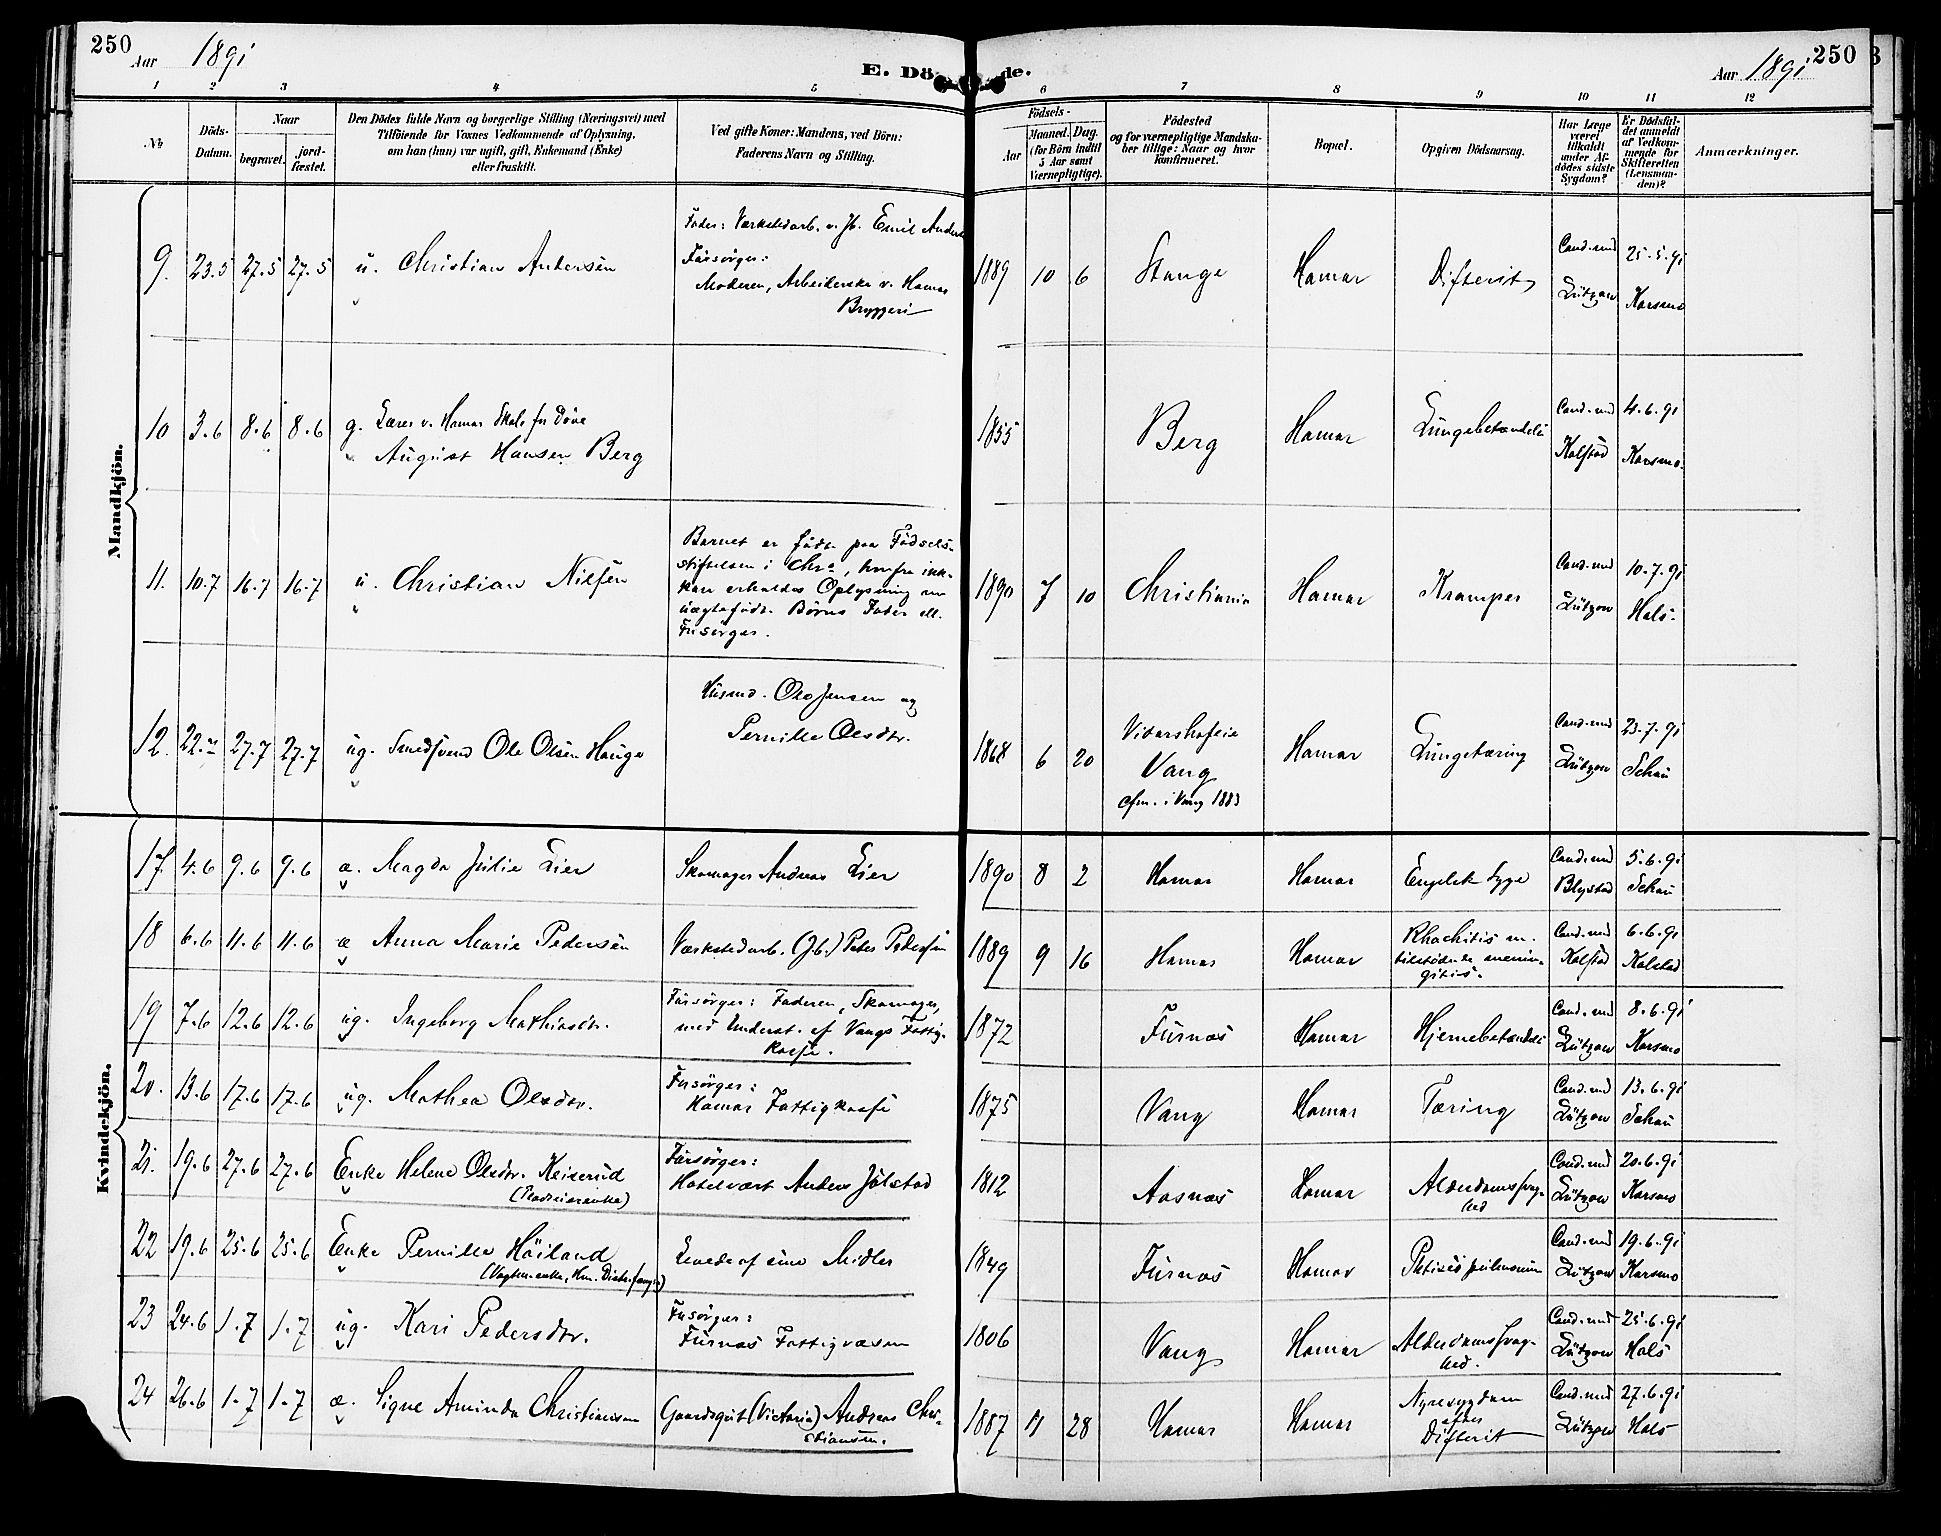 250
Aar 1891
E. Döde.
Aar 1891
250
1 2 3 4 5 6 7 8 9 10 11 12
No
Döds-
Datum.
Naar
begravet.
jord-
fæstet.
Den Dödes fulde Navn og borgerlige Stilling (Næringsvei) med
Tilföiende for Voxnes Vedkommende af Oplysning,
om han (hun) var ugift, gift, Enkemand (Enke)
eller fraskilt.
Ved gifte Koner: Mandens, ved Börn:
Faderens Navn og Stilling.
Födsels-
Aar
Maaned. Dag.
(for Börn indtil
5 Aar samt
Værnepligtige).
Födested
og for værnepligtige Mandska-
ber tillige: Naar og hvor
konfirmeret.
Bopæl.
Opgiven Dödsaarsag.
Har Læge
været
tilkaldt
under Af-
dødes sidste
Sygdom?
Er Dødsfal-
det anmeldt
af Vedkom-
mende for
Skifteretten
(Lensman-
den)?
Anmærkninger.
Mandkjön.
9. 23.5 27.5 27.5 u. Christian Andersen
Fader: Værkstedarb. v. Jb. Emil Anders
Forsørger:
Moderen, Arbeiderske v. Hamar
Bryggeri
1889 10 6 Stange Hamar Difterit
Cand. med
Lützow
25.5.91
Karsmo
10 3.6 8.6 8.6 g. Lærer v. Hamar Skole for Døve
August Hansen Berg
1855 Berg Hamar Lungebetændelse
Cand. med
Kolstad
4.6.91
Karsmo.
11. 10.7 16.7 16.7 u. Christian Nilsen
Barnet er født paa Fødsels-
stiftelsen i Chra, hvorfra ikke
kan erholdes Oplysning om
uægtefødte Børns Fader ell.
Forsørger.
1890 7 10 Christiania Hamar Kramper
Cand. med
Lützow
10.7.91
Hals.
12. 22.7 27.7 27.7 ug. Smedsvend Ole Olsen Hauge
Husmd. Ole Jensen og
Pernille Olsdtr.
1868 6 20
Vidarshofeie
Vang
cfm. i Vang 1883
Hamar Lungetæring
Cand. med
Lützow
23.7.91
Schou
Kvindekjön.
17. 4.6 9.6 9.6 æ. Magda Julie Lier
Skomager Andreas Lier
1890 8 2 Hamar Hamar Engelsk Syge
Cand. med
Blystad
5.6.91
Schou
18 6.6 11.6 11.6 æ Anna Marie Pedersen
Værkstedarb. (Jb.) Peter Pedersen
1889 9 16 Hamar Hamar
Rhachitis m.
tilstødende menin-
gitis.
Cand. med
Kolstad
6.6.91
Kolstad
19 7.6 12.6 12.6 ug. Ingeborg Mathiasdr.
Forsørger: Faderen, Skomager,
med Underst. af Vangs Fattig-
kasse.
1872 Furnæs Hamar Hjernebetændelse
Cand. med
Lützow
8.6.91
Karsmo
20. 13.6 17.6 17.6 ug. Mathea Olsdtr.
Forsørger:
Hamar Fattigkasse
1875 Vang Hamar Tæring
Cand. med
Lützow
13.6.91
Schou
21. 19.6 27.6 27.6 Enke Helene Olsdtr. Keiserud
Forsørger:
Hotelvært Anders Jølstad
1812 Aasnæs Hamar
Alderdomssvag-
hed
Cand. med
Lützow
20.6.91
Karsmo
22 19.6 25.6 25.6 Enke Pernille Høiland
Levede af sine Midler
1849 Furnæs Hamar Phtisis pulmonum
Cand. med
Lützow
19.6.91
Karsmo
23 24.6 1.7 1.7 ug. Kari Pedersdtr.
Forsørger:
Furnæs Fattigvæsen
1806 Vang Hamar
Alderdomssvag-
hed.
Cand. med
Lützow
25.6.91
Hals
24 26.6 1.7 1.7 æ. Signe Aminda Christiansen
Gaardsgut (Victoria) Andreas Chri-
stiansen.
1887 11 28 Hamar Hamar
Nyresygdom
efter
Difterit
Cand. med
Lützow
27.6.91
Hals